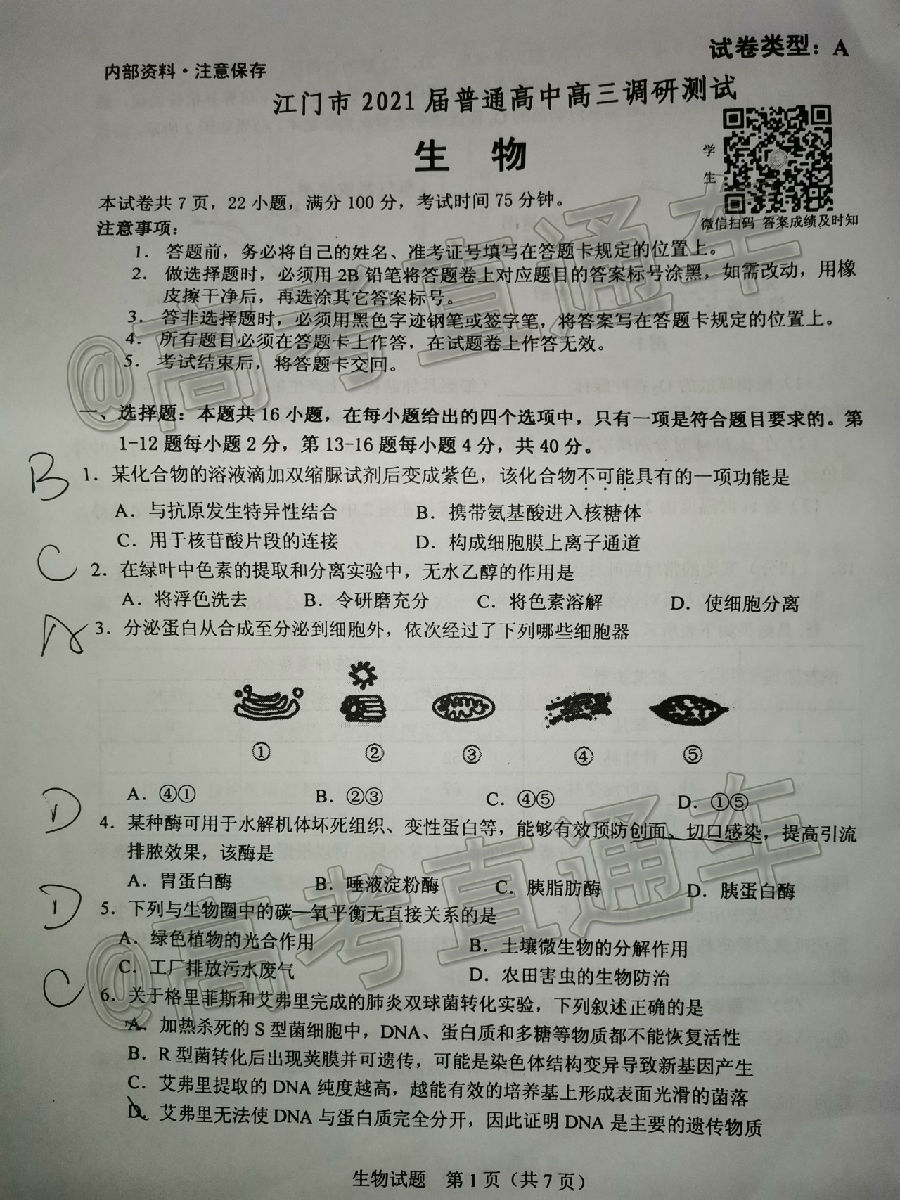 试卷类型：A
内部资料·注意保存
江门市 2021 届普通高中高三调研测试
生 物
学
生
微信扫码 答案成绩及时知
本试卷共 7 页，22 小题，满分 100 分，考试时间 75 分钟。
注意事项：
1. 答题前，务必将自己的姓名、准考证号填写在答题卡规定的位置上。
2. 做选择题时，必须用 2B 铅笔将答题卷上对应题目的答案标号涂黑，如需改动，用橡
皮擦干净后，再选涂其它答案标号。
3. 答非选择题时，必须用黑色字迹钢笔或签字笔，将答案写在答题卡规定的位置上。
4. 所有题目必须在答题卡上作答，在试题卷上作答无效。
5. 考试结束后，将答题卡交回。
@高考直通车
一、选择题：本题共 16 小题，在每小题给出的四个选项中，只有一项是符合题目要求的。第
1-12 题每小题 2 分，第 13-16 题每小题 4 分，共 40 分。
B
1．某化合物的溶液滴加双缩脲试剂后变成紫色，该化合物不可能具有的一项功能是
A．与抗原发生特异性结合 B．携带氨基酸进入核糖体
C．用于核苷酸片段的连接 D．构成细胞膜上离子通道
C
2．在绿叶中色素的提取和分离实验中，无水乙醇的作用是
A．将浮色洗去 B．令研磨充分 C．将色素溶解 D．使细胞分离
A
3．分泌蛋白从合成至分泌到细胞外，依次经过了下列哪些细胞器
① ② ③ ④ ⑤
A．④① B．②③ C．④⑤ D．①⑤
D
4．某种酶可用于水解机体坏死组织、变性蛋白等，能够有效预防创面、切口感染，提高引流
排脓效果，该酶是
A．胃蛋白酶 B．唾液淀粉酶 C．胰脂肪酶 D．胰蛋白酶
D
5．下列与生物圈中的碳—氧平衡无直接关系的是
A．绿色植物的光合作用 B．土壤微生物的分解作用
C．工厂排放污水废气 D．农田害虫的生物防治
@高考直通车
C
6．关于格里菲斯和艾弗里完成的肺炎双球菌转化实验，下列叙述正确的是
A．加热杀死的 S 型菌细胞中，DNA、蛋白质和多糖等物质都不能恢复活性
B．R 型菌转化后出现荚膜并可遗传，可能是染色体结构变异导致新基因产生
C．艾弗里提取的 DNA 纯度越高，越能有效的培养基上形成表面光滑的菌落
D．艾弗里无法使 DNA 与蛋白质完全分开，因此证明 DNA 是主要的遗传物质
生物试题 第 1 页（共 7 页）